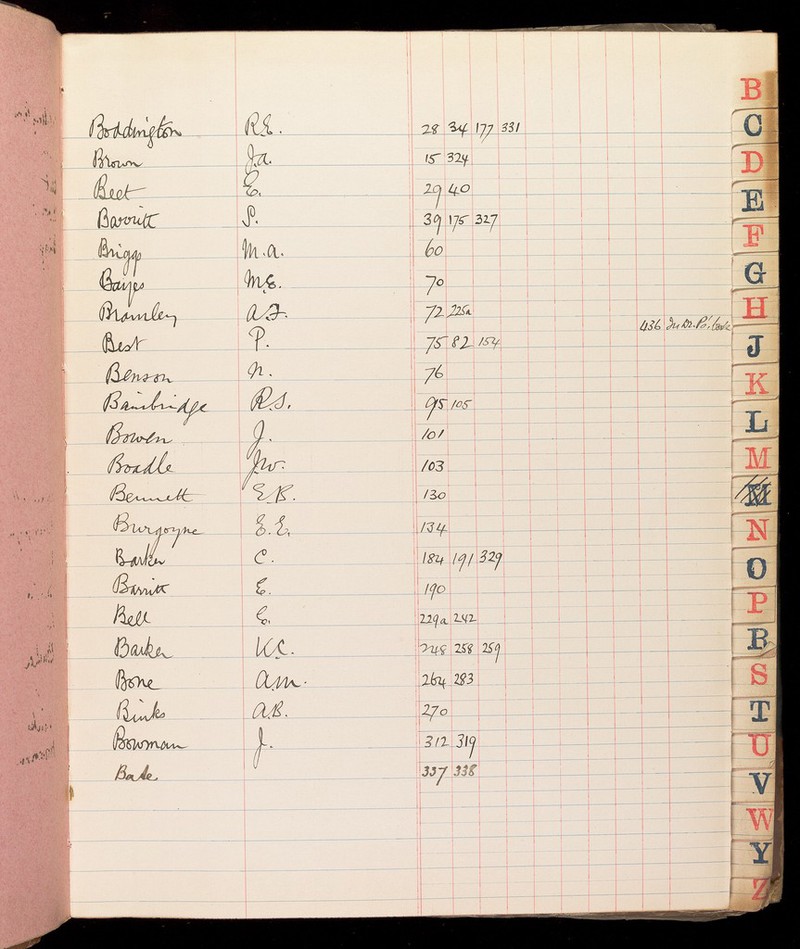 Boddington R.E. 28 34 177 331
Brown J.A. 15 324
Beet E. 29 40
Barritt S. 39 175 327
Briggs M.A. 60
Bayes M.E. 70
Bramley A.F. 72 225a
436 In Dr. P's
Best P. 75 82 154
Benson N. 76
Bainbridge R.S. 95 105
Bowen J. 101
Boadle J.W. 103
Bennett E.B. 130
Burgoyne E.E. 134
Barker C. 184 191 329
Barritt E. 190
Bell E. 229a 242
Barker K.C. 248 258 259
Bone A.M. 264 283
Binks A.B. 270
Bowman J. 312 319
Bate 337 338
B
C
D
E
F
G
H
J
K
L
M
M
N
O
P
R
S
T
U
V
W
Y
Z